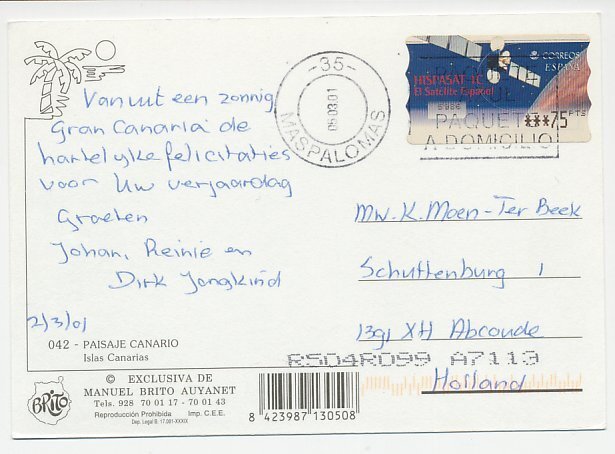 Vanuit een zonnig
Gran Canaria de
hartelijke felicitaties
voor Uw verjaardag
Groeten
Johan, Reinie en
Dirk Jongkind
2/3/01
042 - PAISAJE CANARIO
Islas Canarias
© EXCLUSIVA DE
MANUEL BRITO AUYANET
Tels. 928 70 01 17 - 70 01 43
Reproducción Prohibida Imp. C.E.E.
Dep. Legal B. 17.001-XXXIX
BRITO
8 423987 130508
-35-
06.03.01
MASPALOMAS
CORREOS
ESPAÑA
HISPASAT 1C
El Satélite Español
***75 PTS
PAQUET
A DOMICILIO
Mw. K. Moen-Ter Beek
Schuttenburg 1
1391 XH Abcoude
RS04R099 A7113
Holland